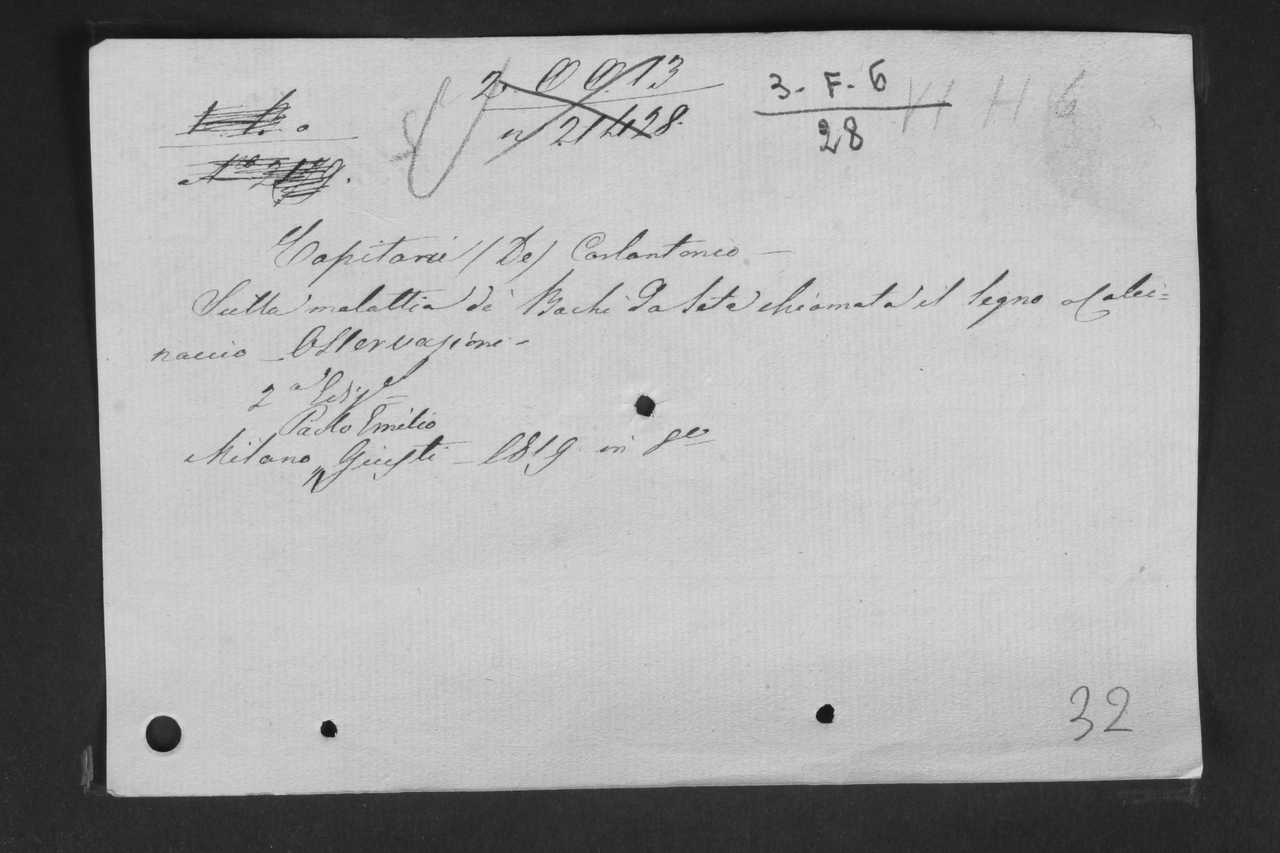 2. 0 9.13
n 21428.
3-F-6
28
VI H 6
Capitani (De) Carlantonio —
Sulla malattia di Bachi da Seta chiamata il segno o Calci=
naccio Osservazioni -
2a Ediz.e
Paolo Emilio
Milano Giusti — 1819 in 8vo
32